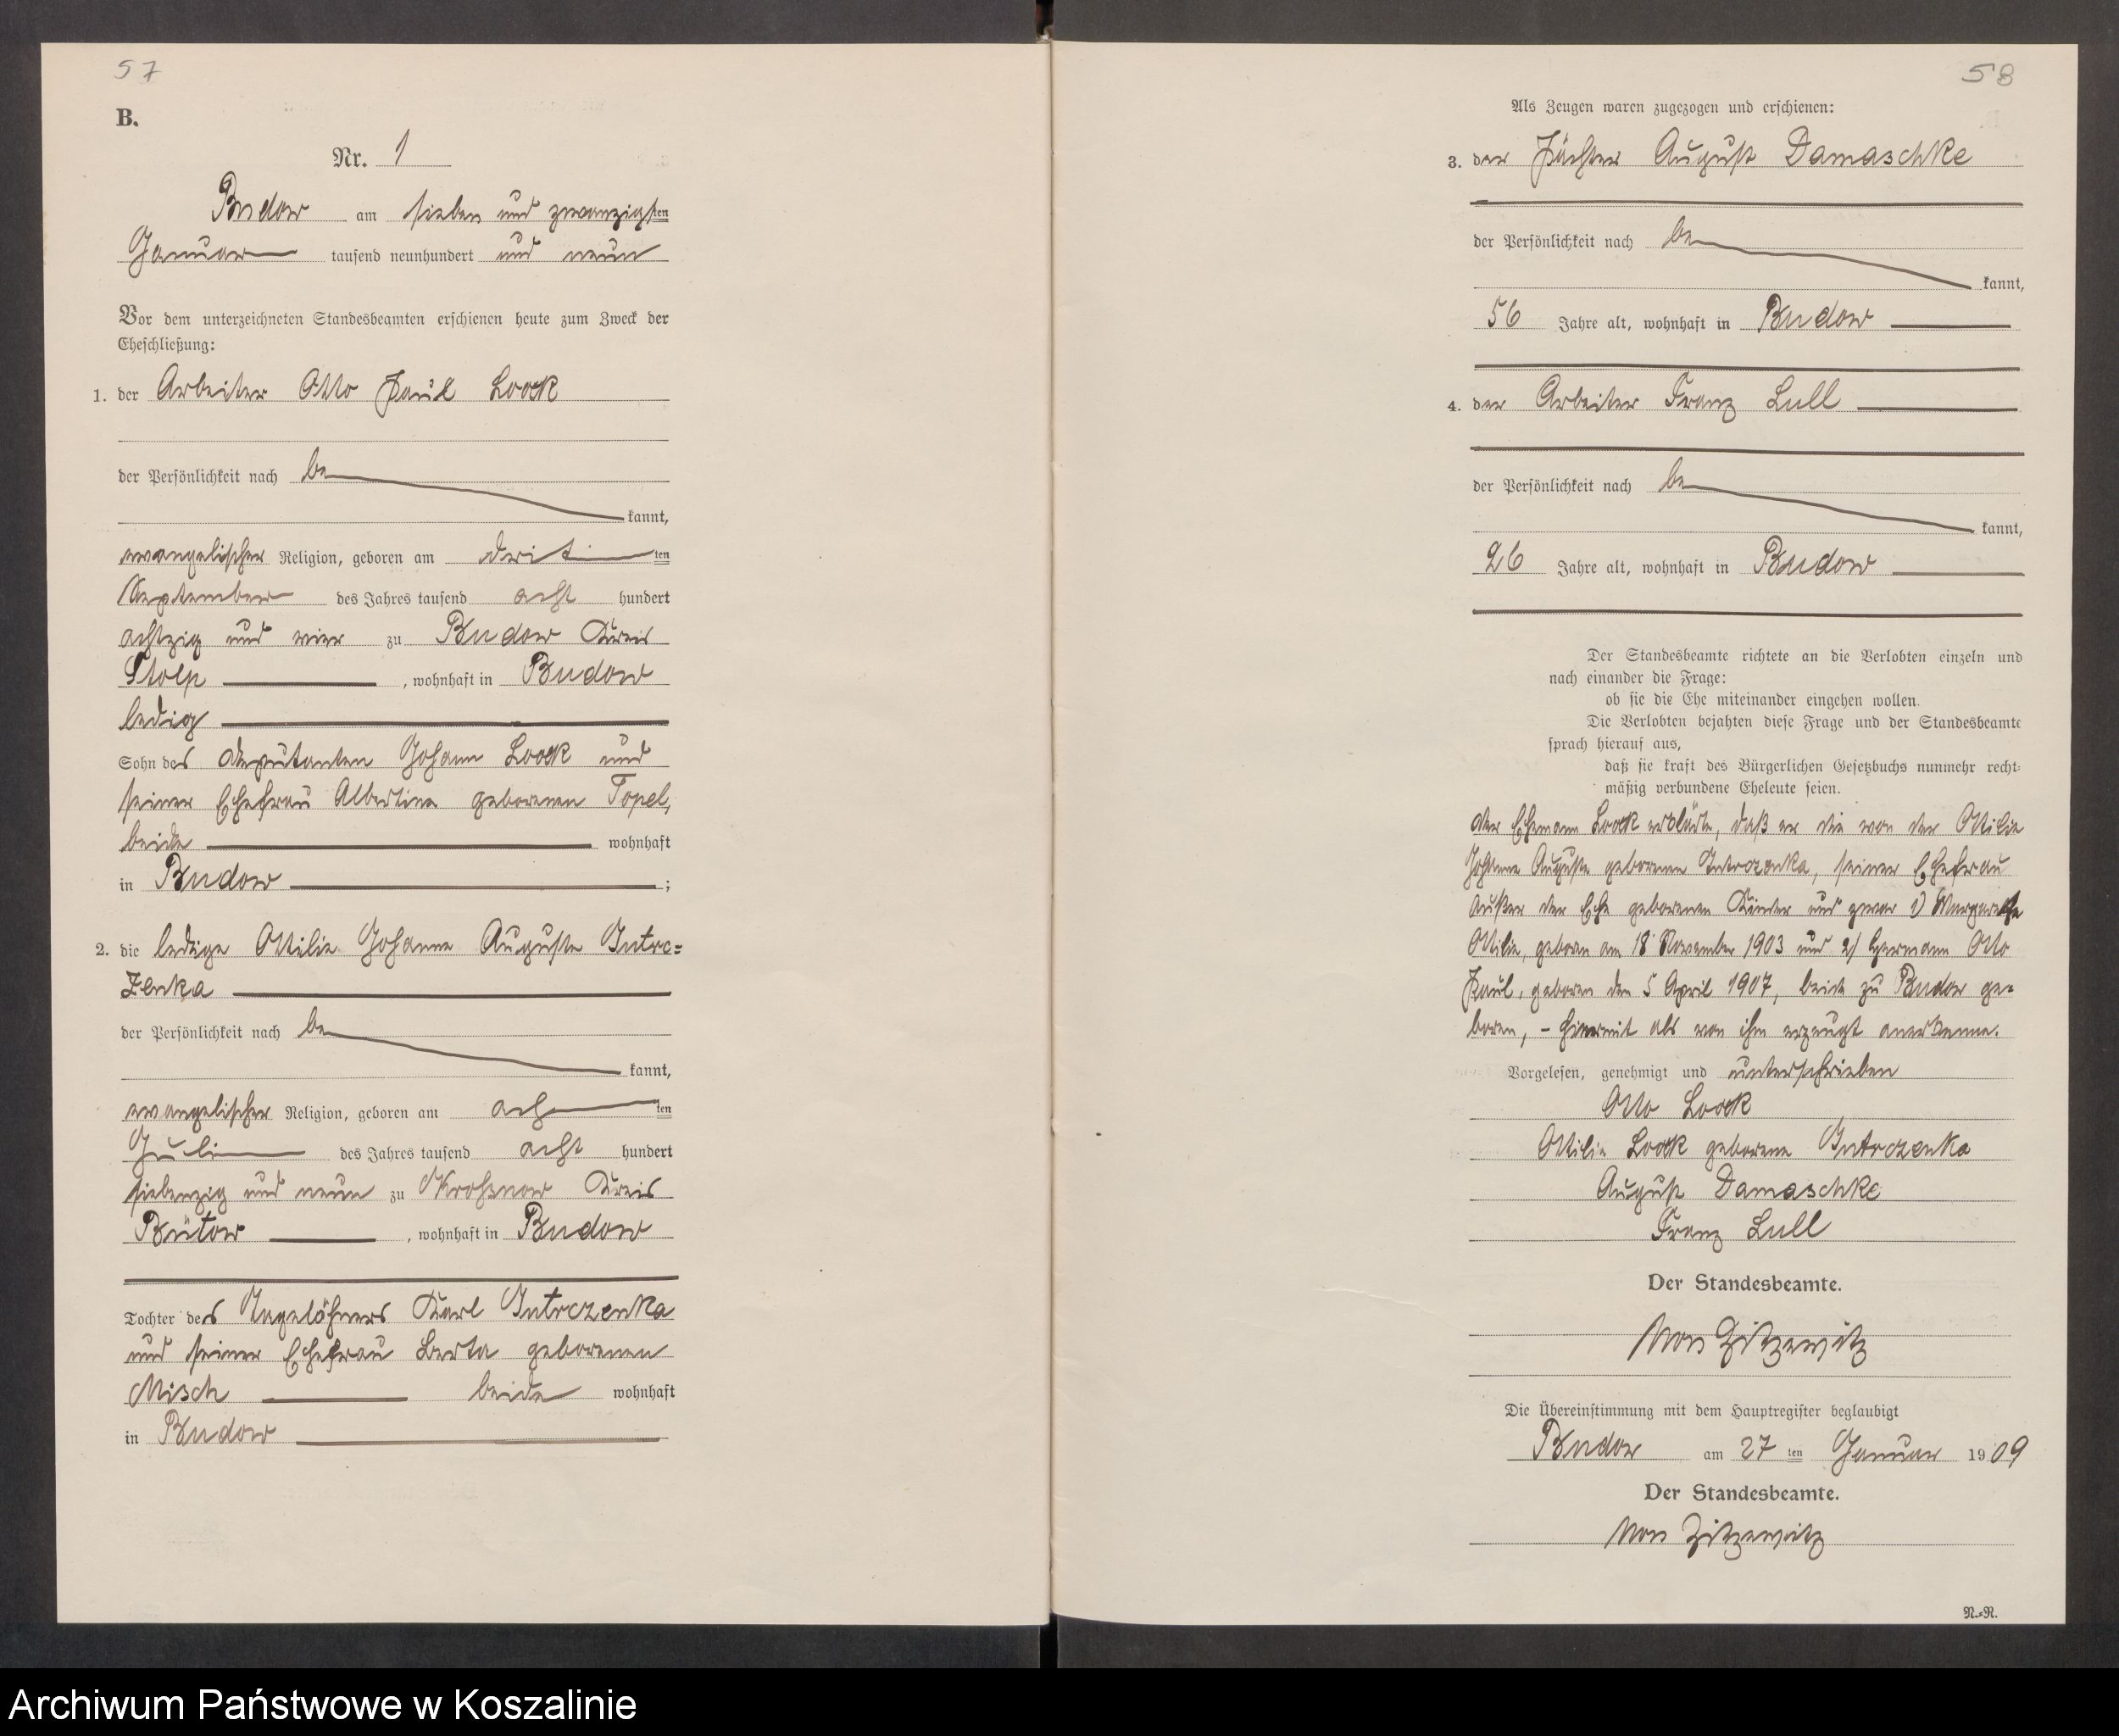 57
B.
Nr. 1
Budow am sieben und zwanzigsten
Januar tausend neunhundert und neun
Vor dem unterzeichneten Standesbeamten erschienen heute zum Zweck der
Eheschließung:
1. der Arbeiter Otto Paul Loock
der Persönlichkeit nach be
kannt,
evangelischer Religion, geboren am drit ten
September des Jahres tausend acht hundert
achtzig und vier zu Budow Kreis
Stolp , wohnhaft in Budow
ledig
Sohn des Deputanten Johann Loock und
seiner Ehefrau Albertine geborenen Topel,
beide wohnhaft
in Budow ;
2. die ledige Ottilie Johanne Auguste Intrc=
zenka
der Persönlichkeit nach be
kannt,
evangelischer Religion, geboren am ach ten
Juli des Jahres tausend acht hundert
siebenzig und neun zu Kroßnow Kreis
Bütow , wohnhaft in Budow
Tochter des Tagelöhners Karl Intrczenka
und seiner Ehefrau Berta geborenen
Misch beide wohnhaft
in Budow
58
Als Zeugen waren zugezogen und erschienen:
3. der Pächter August Damaschke
der Persönlichkeit nach be
kannt,
56 Jahre alt, wohnhaft in Budow
4. der Arbeiter Franz Lull
der Persönlichkeit nach be
kannt,
26 Jahre alt, wohnhaft in Budow
Der Standesbeamte richtete an die Verlobten einzeln und
nach einander die Frage:
ob sie die Ehe miteinander eingehen wollen.
Die Verlobten bejahten diese Frage und der Standesbeamte
sprach hierauf aus,
daß sie kraft des Bürgerlichen Gesetzbuchs nunmehr recht-
mäßig verbundene Eheleute seien.
Der Ehemann Loock erklärte, daß er die von der Ottilie
Johanne Auguste geborenen Intrczenka, seiner Ehefrau
außer der Ehe geborenen Kinder und zwar 1) Margarethe
Ottilie, geboren am 18 November 1903 und 2) Hermann Otto
Paul, geboren den 5 April 1907, beide zu Budow ge=
boren, - hiermit als von ihm erzeugt anerkenne.
Vorgelesen, genehmigt und unterschrieben
Otto Loock
Ottilie Loock geborene Intrczenka
August Damaschke
Franz Lull
Der Standesbeamte.
von Zitzewitz
Die Übereinstimmung mit dem Hauptregister beglaubigt
Budow am 27 ten Januar 1909
Der Standesbeamte.
von Zitzewitz
N.-R.
Archiwum Państwowe w Koszalinie